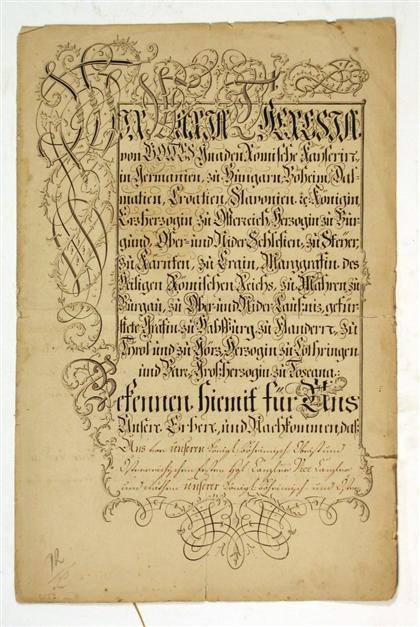 WIR MARIA THERESIA
von GOTTES Gnaden Römische Kayserin,
in Germanien, zu Hungarn, Böheim, Dal-
matien, Croatien, Slavonien, &c. Königin,
Ertzherzogin zu Österreich, Herzogin zu Bur-
gund, Ober- und Nider Schlesien, zu Steyer,
zu Karnten, zu Crain, Marggräfin des
Heiligen Römischen Reichs, zu Mähren, zu
Burgau, zu Ober- und Nider Laußniz, gefür-
stete Gräfin zu Habspurg, zu Flandern, zu
Tyrol und zu Görz, Herzogin zu Lothringen
und Bar, Großherzogin zu Toscana:
Bekennen hiemit für Uns
Unsere Erben, und Nachkommen, daß
Uns von unseren Königl. Böheimisch Obrist und
Österreichischen ersten Canzler Vice Canzler
und unserer Königl. Böheimisch und Öster